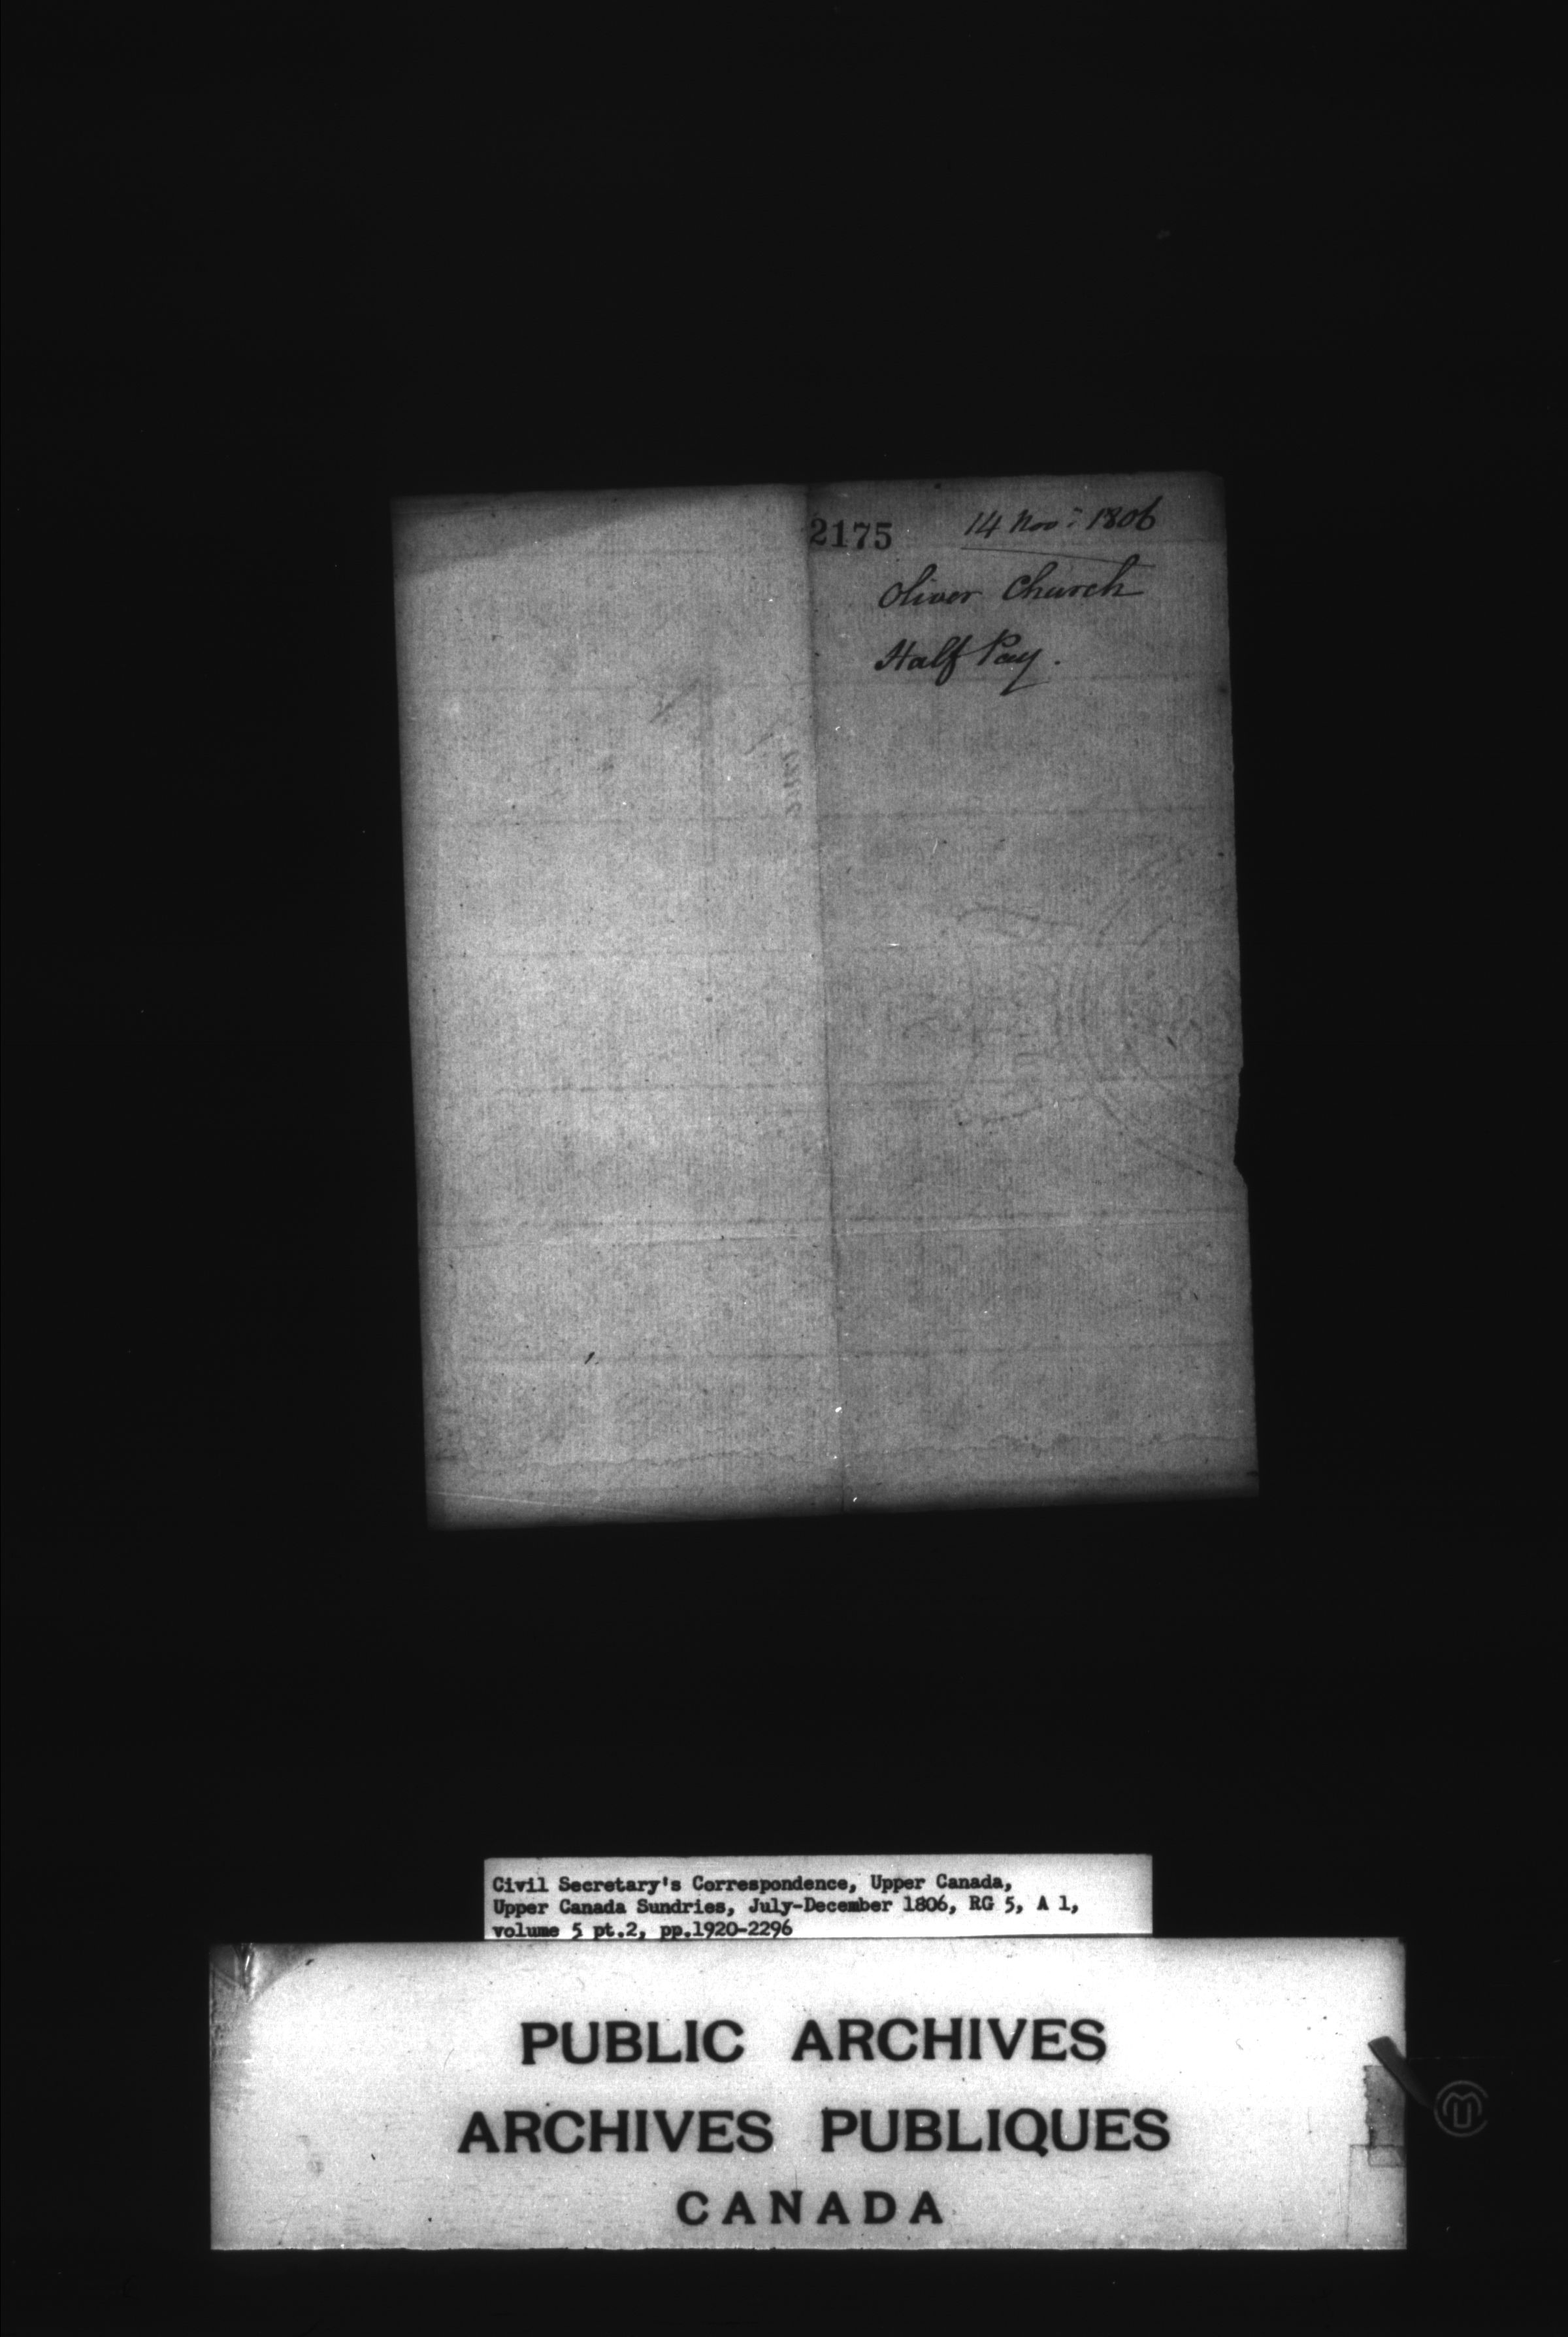 2175 14 Nov: 1806
Oliver Church
Half Pay.
Civil Secretary's Correspondence, Upper Canada,
Upper Canada Sundries, July-December 1806, RG 5, A 1,
volume 5 pt.2, pp.1920-2296
PUBLIC ARCHIVES
ARCHIVES PUBLIQUES
CANADA